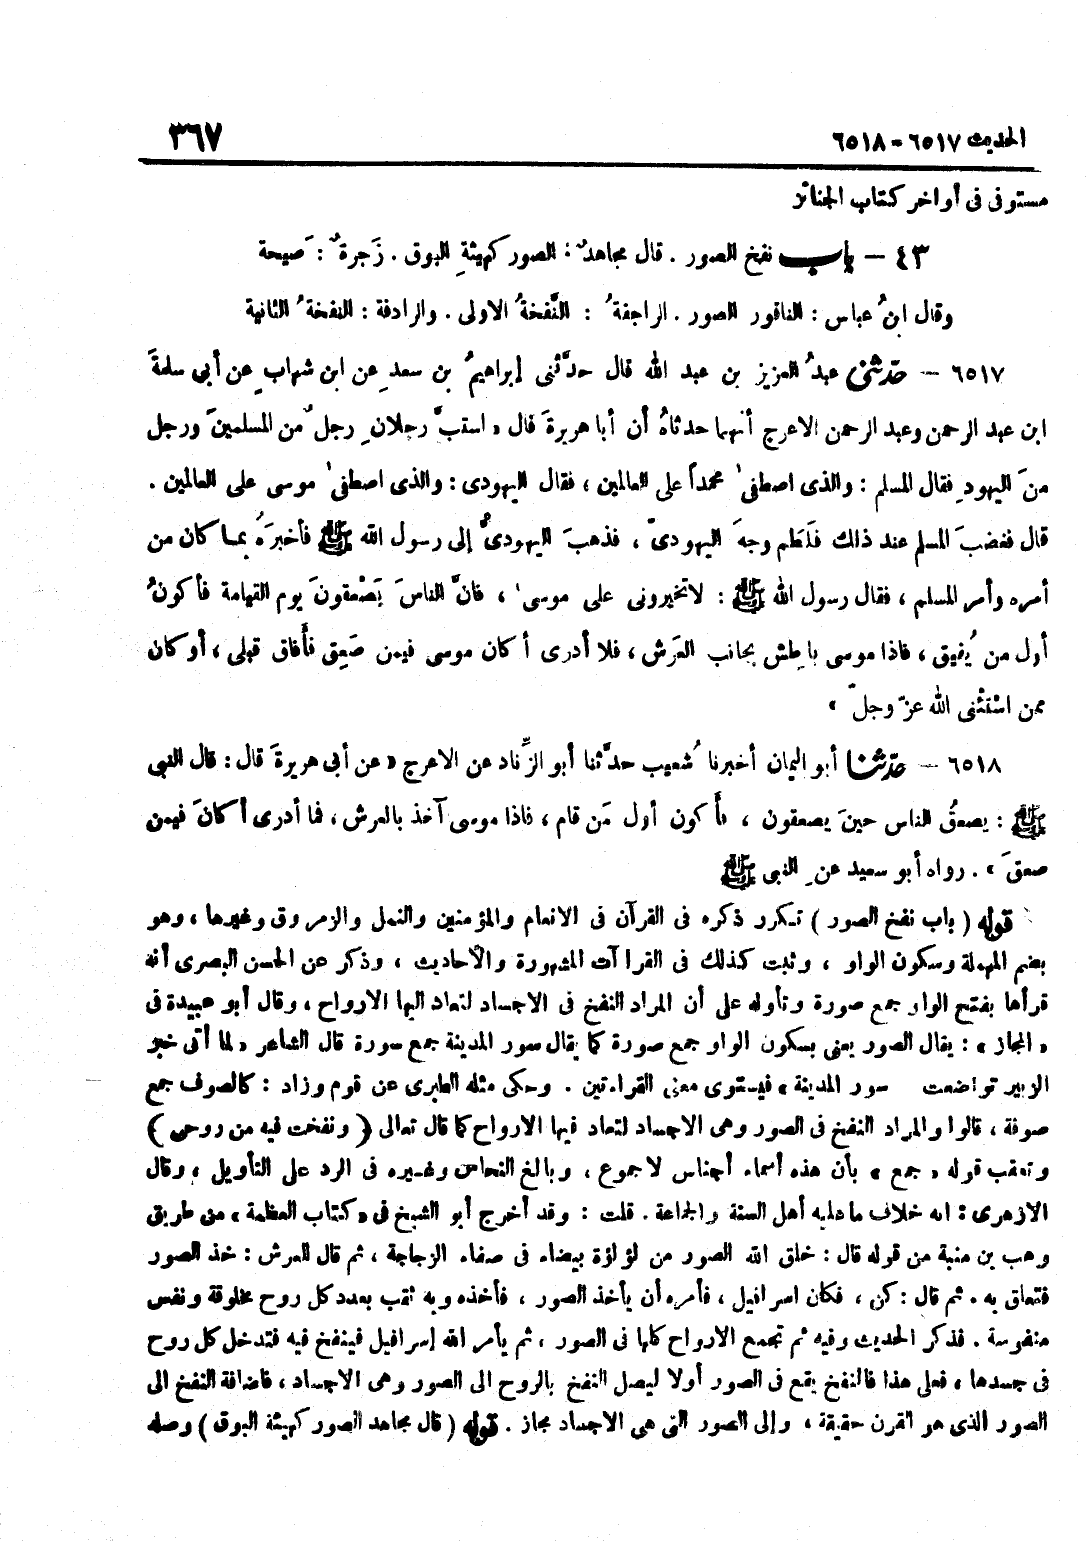 الحديث ٦٥١٧ - ٦٥١٨
٣٦٧
مستوفى فى أواخر كتاب الجنائز
٤٣ – باب نفخ الصور . قال مجاهدٌ : الصور كهيئةِ البوق . زَجرةٌ : صَيحة
وقال ابنُ عباس : الناقور الصور . الراجفةُ : النَّفخةُ الاولى . والرادفة : النفخةُ الثانية
٦٥١٧ – حدّثنى عبدُ العزيز بن عبد الله قال حدَّثنى إبراهيمُ بن سعدٍ عن ابن شهابٍ عن أبى سلمةَ
ابن عبد الرحمن وعبد الرحمن الاعرج أنهما حدثاهُ أن أبا هريرةَ قال « استبَّ رجلانِ رجلٌ من المسلمينَ ورجل
منَ اليهودِ فقال المسلم : والذى اصطفىٰ محمداً على العالمين ، فقال اليهودى : والذى اصطفىٰ موسى على العالمين .
قال فغضبَ المسلم عند ذلك فلَطم وجهَ اليهودىّ ، فذهبَ اليهودىُّ إلى رسول الله ﷺ فأخبرَهُ بما كان من
أمره وأمر المسلم ، فقال رسول الله ﷺ : لاتخيرونى على موسىٰ ، فانَّ الناسَ يَصْعقونَ يوم القيامة فأكونُ
أول من يُفيق ، فاذا موسى باطش بجانب العَرش ، فلا أدرى أكان موسى فيمن صَعِق فأفاق قبلى ، أو كان
ممن اسْتَثْنى الله عزّ وجلّ »
٦٥١٨ – حدّثنا أبو اليمان أخبرنا شُعيب حدَّثنا أبو الزِّناد عن الاعرج « عن أبى هريرةَ قال : قال النبى
ﷺ : يصعقُ الناس حينَ يصعقون ، فأكون أول مَن قام ، فاذا موسى آخذ بالعرش ، فما أدرى أكانَ فيمن
صعقَ » . رواه أبو سعيد عنِ النبى ﷺ
قوله ( باب نفخ الصور ) تكرر ذكره فى القرآن فى الانعام والمؤمنين والنمل والزمر وق وغيرها ، وهو
بضم المهملة وسكون الواو ، وثبت كذلك فى القراآت المشهورة والأحاديث ، وذكر عن الحسن البصرى أنه
قرأها بفتح الواو جمع صورة وتأوله على أن المراد النفخ فى الاجساد لتعاد اليها الارواح ، وقال أبو عبيدة فى
« المجاز » : يقال الصور يعنى بسكون الواو جمع صورة كما يقال سور المدينة جمع سورة قال الشاعر « لما أتى خبر
الزبير تواضعت سور المدينة » فيستوى معنى القراءتين . وحكى مثله الطبرى عن قوم وزاد : كالصوف جمع
صوفة ، قالوا والمراد النفخ فى الصور وهى الاجساد لتعاد فيها الارواح كما قال تعالى ( ونفخت فيه من روحى )
وتعقب قوله « جمع » بأن هذه أسماء أجناس لا جموع ، وبالغ النحاس وغيره فى الرد على التأويل ، وقال
الازهرى : انه خلاف ما عليه أهل السنة والجماعة . قلت : وقد أخرج أبو الشيخ فى « كتاب العظمة » من طريق
وهب بن منبه من قوله قال : خلق الله الصور من لؤلؤة بيضاء فى صفاء الزجاجة ، ثم قال للعرش : خذ الصور
فتعلق به . ثم قال : كن ، فكان اسرافيل ، فأمره أن يأخذ الصور ، فأخذه وبه ثقب بعدد كل روح مخلوقة ونفس
منفوسة . فذكر الحديث وفيه ثم تجمع الارواح كلها فى الصور ، ثم يأمر الله إسرافيل فينفخ فيه فتدخل كل روح
فى جسدها ، فعلى هذا فالنفخ يقع فى الصور أولا ليصل النفخ بالروح الى الصور وهى الاجساد ، فاضافة النفخ الى
الصور الذى هو القرن حقيقة ، وإلى الصور التى هى الاجساد مجاز . قوله ( قال مجاهد الصور كهيئة البوق ) وصله